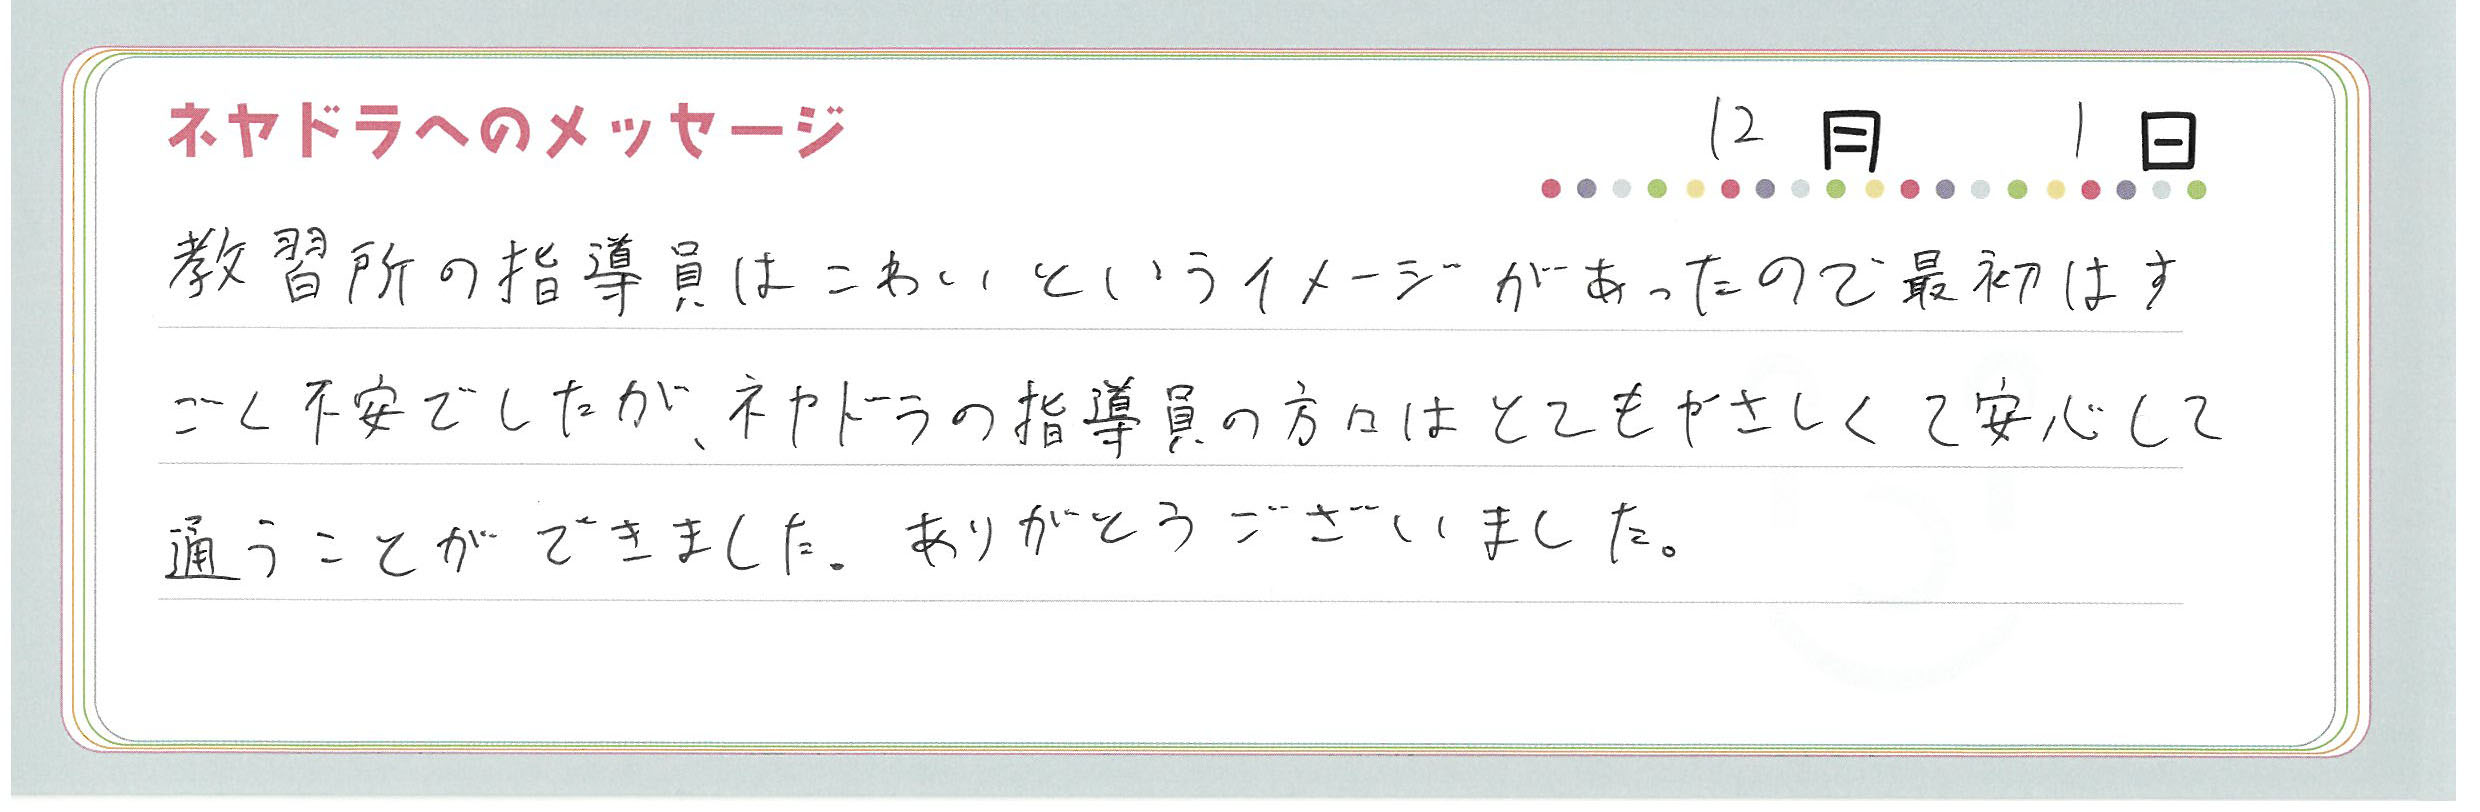 ネヤドラへのメッセージ
12月 1日
教習所の指導員はこわいというイメージがあったので最初はす
ごく不安でしたが、ネヤドラの指導員の方々はとてもやさしくて安心して
通うことができました。ありがとうございました。